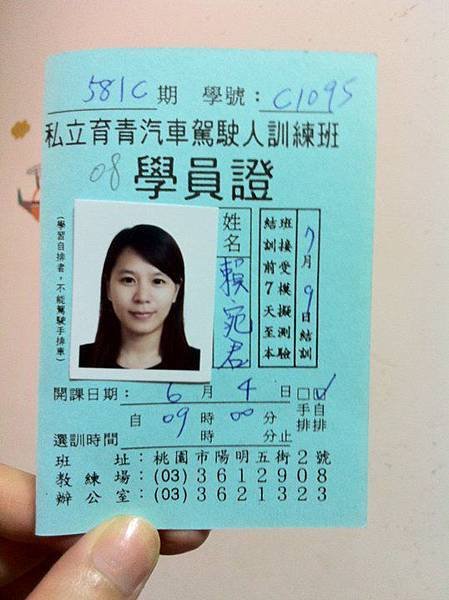 581C期 學號：C1095
私立育青汽車駕駛人訓練班
08 學員證
（學習自排者，不能駕駛手排車）
姓名 賴宛君
結訓前7天至本
班接受模擬測驗
7月9日結訓
開課日期：6月4日 □手排 ☑自排
選訓時間 自09時00分
時 分止
班 址：桃園市陽明五街2號
教練場：(03)3612908
辦公室：(03)3621323